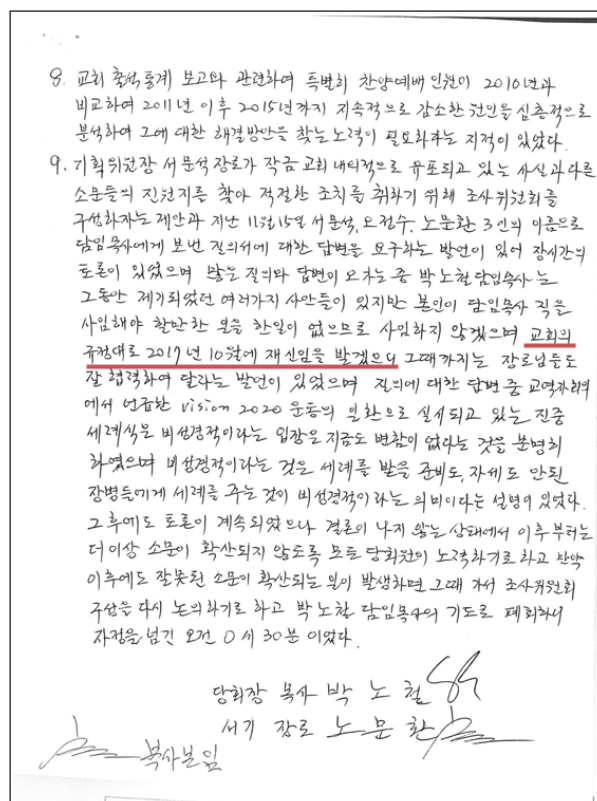 8. 교회 출석통계 보고와 관련하여 특별히 찬양예배 인원이 2010년과
비교하여 2011년 이후 2015년까지 지속적으로 감소한 원인을 심층적으로
분석하여 그에 대한 해결방안을 찾는 노력이 필요하다는 지적이 있었다.
9. 기획위원장 서문석장로가 작금 교회 내외적으로 유포되고 있는 사실과 다른
소문들의 진원지를 찾아 적절한 조치를 취하기 위해 조사위원회를
구성하자는 제안과 지난 11월15일 서문석, 오정수, 노문환 3인의 이름으로
담임목사에게 보낸 질의서에 대한 답변을 요구하는 발언이 있어 장시간의
토론이 있었으며 많은 질의와 답변이 오가는 중 박노철담임목사는
그동안 제기되었던 여러가지 사안들이 있지만 본인이 담임목사 직을
사임해야 할만한 일을 한일이 없으므로 사임하지 않겠으며 교회의
규정대로 2017년 10월에 재신임을 받겠으니 그때까지는 장로님들도
잘 협력하여 달라는 발언이 있었으며 질의에 대한 답변 중 교역자회의
에서 언급한 vision 2020 운동의 일환으로 실시되고 있는 진중
세례식은 비성경적이라는 입장은 지금도 변함이 없다는 것을 분명히
하였으며 비성경적이라는 것은 세례를 받을 준비도, 자세도 안된
장병들에게 세례를 주는 것이 비성경적이라는 의미이다는 설명이 있었다.
그후에도 토론이 계속되었으나 결론이 나지 않는 상태에서 이후 부터는
더이상 소문이 확산되지 않도록 모든 당회원이 노력하기로 하고 만약
이후에도 잘못된 소문이 확산되는 일이 발생하면 그때 가서 조사위원회
구성을 다시 논의하기로 하고 박노철 담임목사의 기도로 폐회하니
자정을 넘긴 오전 0시 30분 이었다.
당회장 목사 박노철
서기 장로 노문환
복사본임